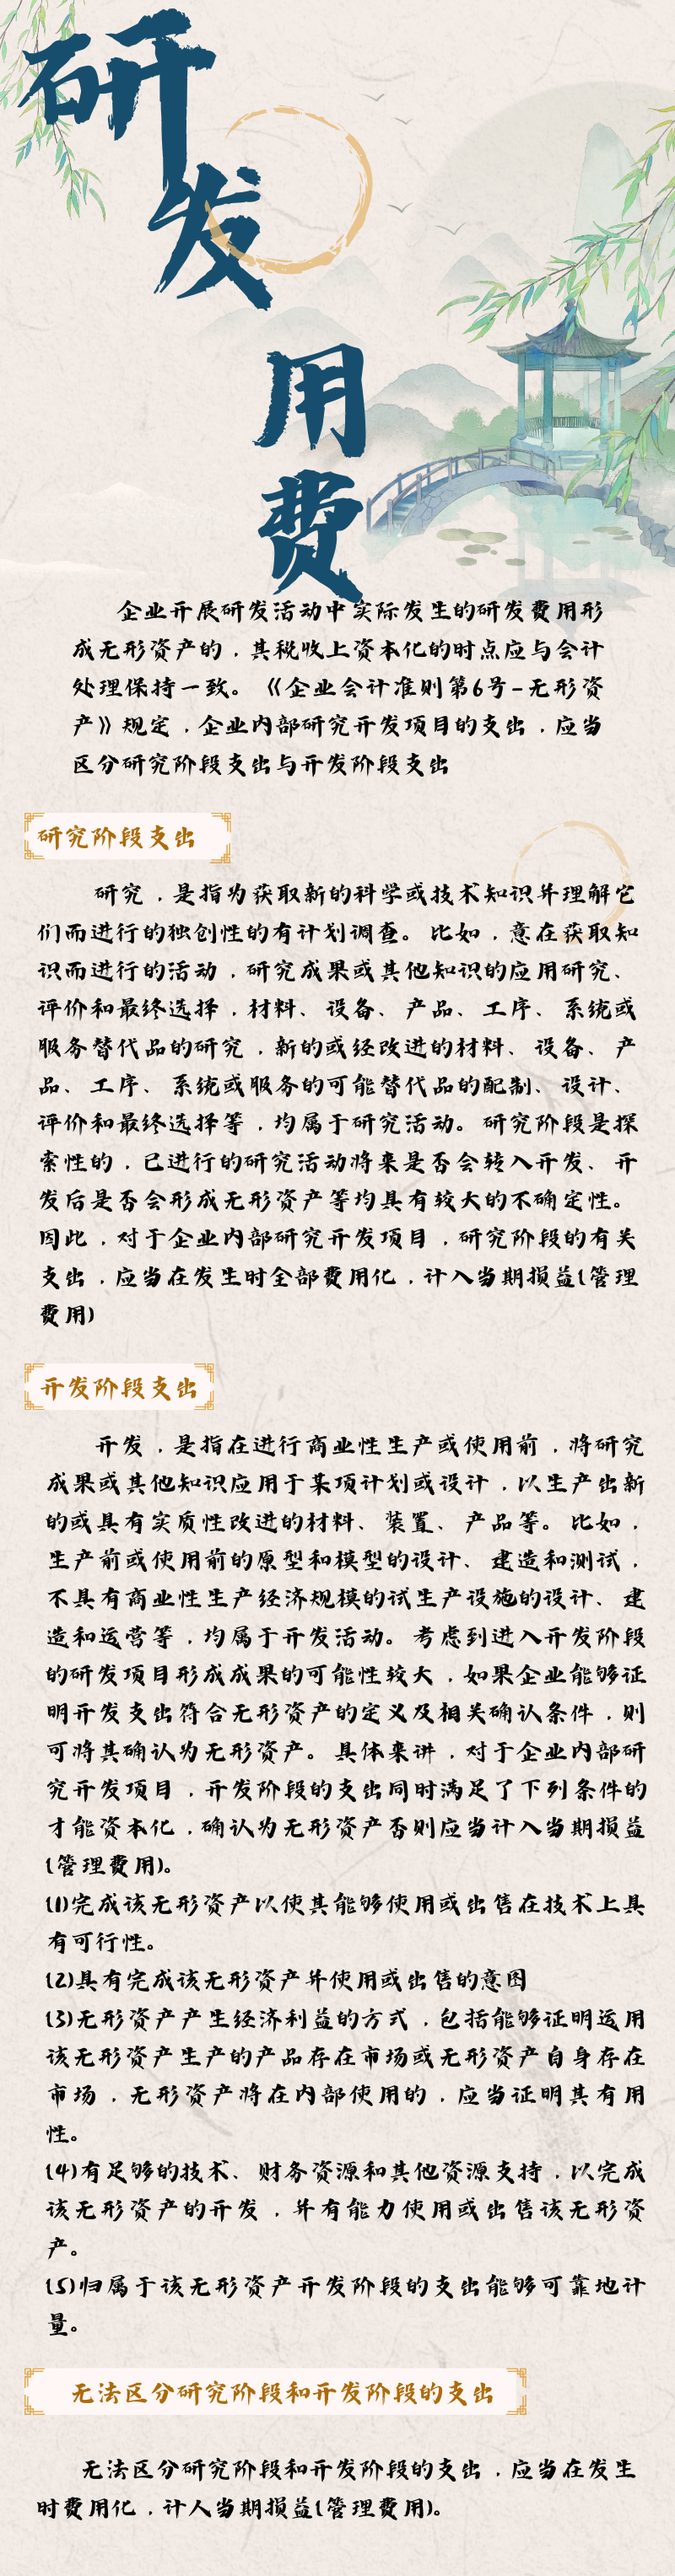 研
发
用
费
企业开展研发活动中实际发生的研发费用形
成无形资产的，其税收上资本化的时点应与会计
处理保持一致。《企业会计准则第6号-无形资
产》规定，企业内部研究开发项目的支出，应当
区分研究阶段支出与开发阶段支出
研究阶段支出
研究，是指为获取新的科学或技术知识并理解它
们而进行的独创性的有计划调查。比如，意在获取知
识而进行的活动，研究成果或其他知识的应用研究、
评价和最终选择，材料、设备、产品、工序、系统或
服务替代品的研究，新的或经改进的材料、设备、产
品、工序、系统或服务的可能替代品的配制、设计、
评价和最终选择等，均属于研究活动。研究阶段是探
索性的，已进行的研究活动将来是否会转入开发、开
发后是否会形成无形资产等均具有较大的不确定性。
因此，对于企业内部研究开发项目，研究阶段的有关
支出，应当在发生时全部费用化，计入当期损益(管理
费用)
开发阶段支出
开发，是指在进行商业性生产或使用前，将研究
成果或其他知识应用于某项计划或设计，以生产出新
的或具有实质性改进的材料、装置、产品等。比如，
生产前或使用前的原型和模型的设计、建造和测试，
不具有商业性生产经济规模的试生产设施的设计、建
造和运营等，均属于开发活动。考虑到进入开发阶段
的研发项目形成成果的可能性较大，如果企业能够证
明开发支出符合无形资产的定义及相关确认条件，则
可将其确认为无形资产。具体来讲，对于企业内部研
究开发项目，开发阶段的支出同时满足了下列条件的
才能资本化，确认为无形资产否则应当计入当期损益
(管理费用)。
(1)完成该无形资产以使其能够使用或出售在技术上具
有可行性。
(2)具有完成该无形资产并使用或出售的意图
(3)无形资产产生经济利益的方式，包括能够证明运用
该无形资产生产的产品存在市场或无形资产自身存在
市场，无形资产将在内部使用的，应当证明其有用
性。
(4)有足够的技术、财务资源和其他资源支持，以完成
该无形资产的开发，并有能力使用或出售该无形资
产。
(5)归属于该无形资产开发阶段的支出能够可靠地计
量。
无法区分研究阶段和开发阶段的支出
无法区分研究阶段和开发阶段的支出，应当在发生
时费用化，计人当期损益(管理费用)。